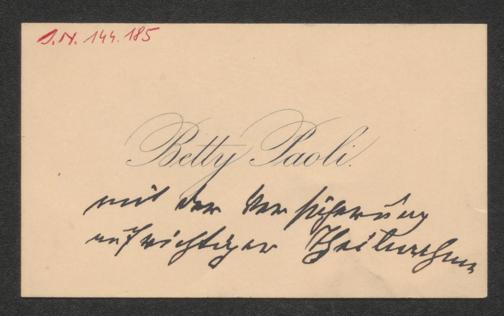 J.N. 144.185
Betty Paoli.
mit der Versicherung
aufrichtiger Theilnahme